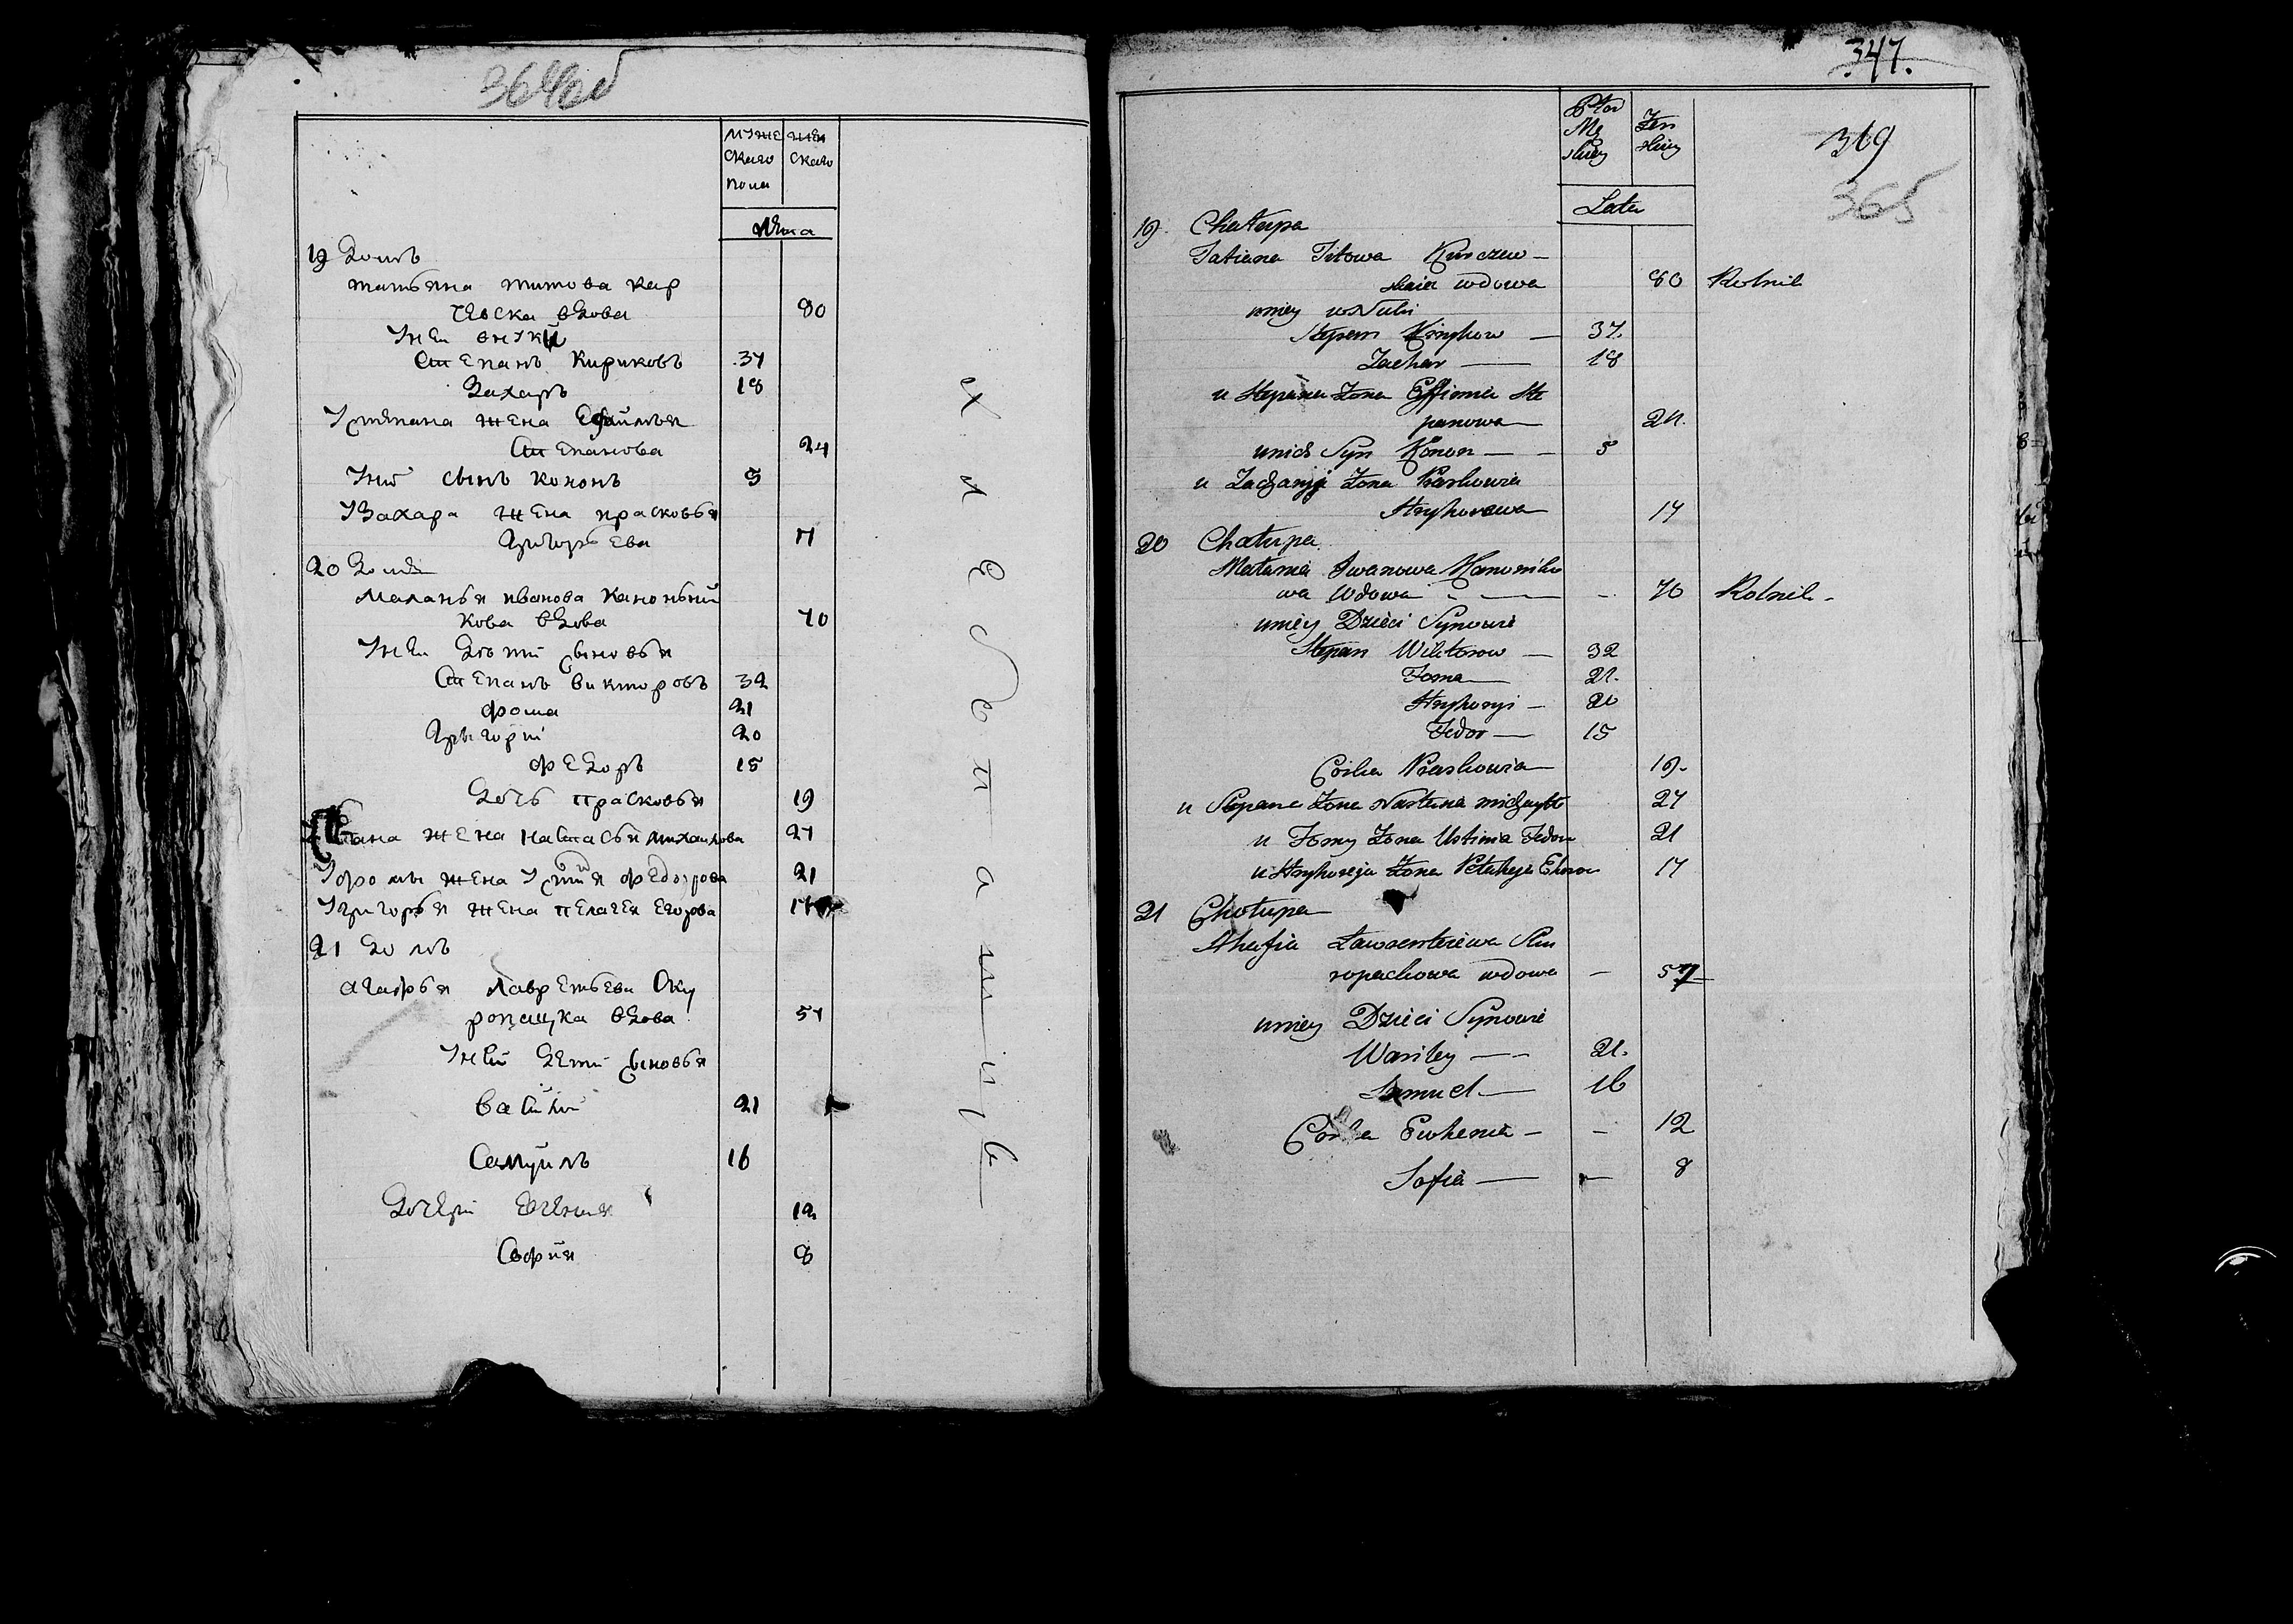 муже жен
скаго скаго
пола
Лѣта
19 Домъ
татьяна титова кар
чевска вдова 80
Унеи внуки
Степанъ Кириковъ 37
Захаръ 18
Устепана жена Ефимья
Степанова 24
Унихъ сынъ кононъ 5
УЗахара жена прасковья
Григорьева 17
20 Домъ
Маланья иванова каноньчи
кова вдова 70
Унеи дѣти сыновья
Степанъ викторовъ 32
фома 21
Григорий 20
федоръ 15
Дочь прасковья 19
жена настасья михаилова 27
Уфомы жена Устинья федорова 21
Угригорья жена пелагея егорова 17
21 Домъ
агафья лаврентьева Ску
ропацка вдова 57
Унеи дети сыновья
Василий 21
Самуилъ 16
Дочери Евгения 12
София 8
хлебопашцъ
347.
369
365
Płci
Mę Żen
skiey skiey
Lata
19. Chałupa
Tatiana Titowa Karczew-
skaia wdowa 80 Rolnik
uniey wNuki
Stepan Kirykow — 37.
Zachar — 18
u Stepana Żona Effimia Ste
panowa — 24.
unich Syn Konon — 5
u Zacharyja Żona Praskowia
Hryhorewa 17
20 Chałupa
Małania Iwanowa Kanoniko
wa Wdowa — 70 Rolnik -
uniey Dzieci Synowie
Stepan Wiktorow — 32
Foma — 21.
Hryhoryi — 20
Fedor — 15
Córka Praskowia — 19.
u Stepana Żona Nastazia 27
u Fomy Żona Ustinia Fedoro 21
u Hryhoreja Żona Pelaheja Ehorow 17
21 Chałupa
Ahafia Ławrenteiewa Sku
ropackowa wdowa — 57
uniey Dzieci Synowie
Wasiley — 21.
Samuel — 16
Córka Ewhenia — - 12
Sofia — — 8